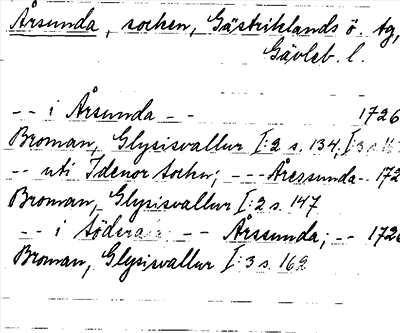 Årsunda, socken, Gästriklands ö. tg,
Gävleb. l.
-- i Årsunda -- 1726
Broman, Glysisvallur I:2 s. 134, I:3 s.
-- uti Idenor sochn; --- Åressunda -- 172
Broman, Glysisvallur I:2 s. 147
-- i södera -- Årssunda; -- 1726
Broman, Glysisvallur I:3 s. 162